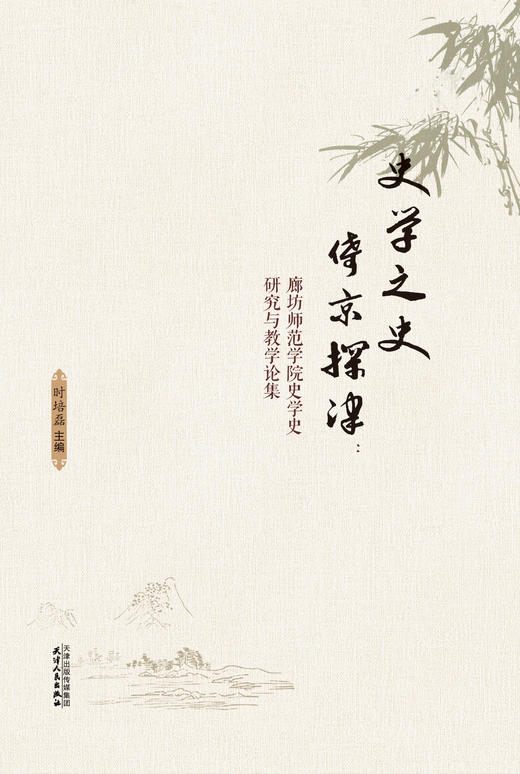 史学之史
倚京探津：
廊坊师范学院史学史
研究与教学论集
时培磊 主编
天津出版传媒集团
天津人民出版社